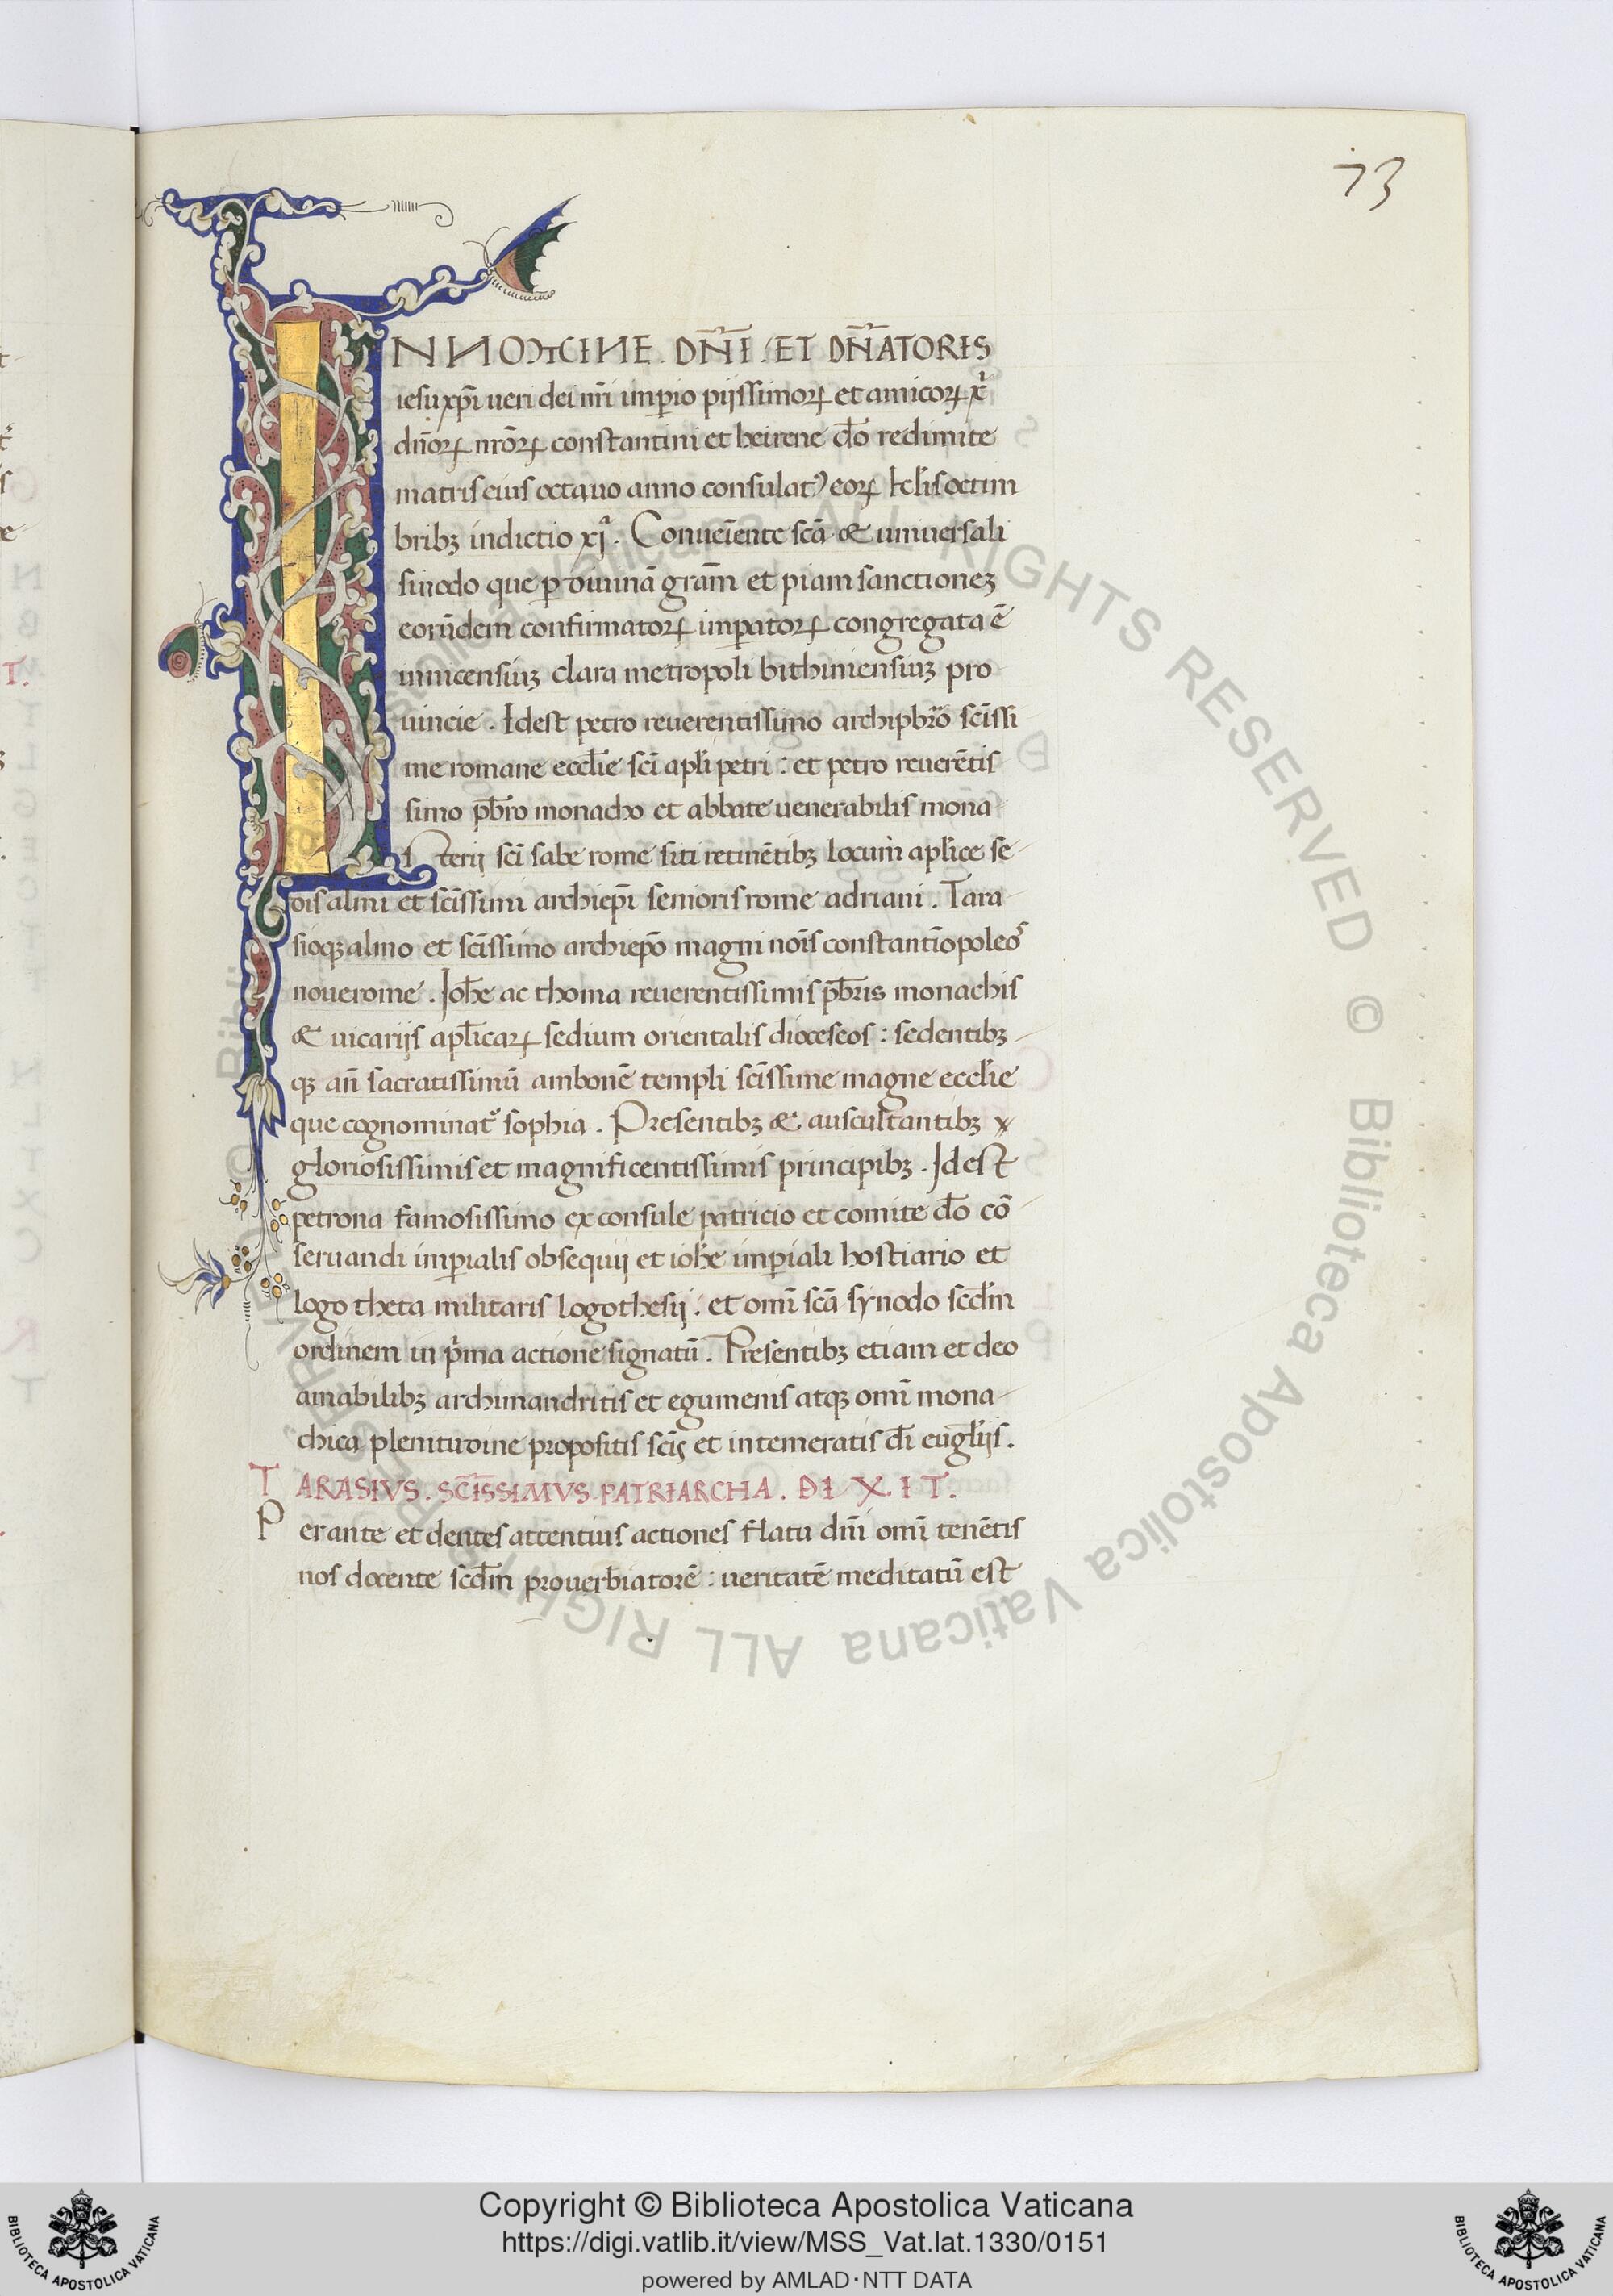 73
INNOMINE . DN̄I . ET DN̄ATORIS
iesu xp̄i ueri dei nr̄i imꝑio pijssimoꝝ et amicoꝝ xp̄i
dn̄oꝝ nr̄oꝝ constantini et heirene do̅ redimite
matris eius octauo anno consulatꝰ eoꝝ kl̄is octim
bribꝫ indictio xiᵃ. Conueīente scā & uniuersali
sinodo que ꝑ diuinā grām et piam sanctioneꝫ
eorūdem confirmatoꝝ imꝑatoꝝ congregata ē
in nicensiuꝫ clara metropoli bithiniensiuꝫ pro
uincie . Idest petro reuerentissimo archipb̄ro sc̄issi
me romane eccl̄ie sc̄i apl̄i petri : et petro reuerētis
simo pb̄ro monacho et abbate uenerabilis mona
sterij sc̄i sabe rome siti retinētibꝫ locum apl̄ice se
dis almi et sc̄issimi archiep̄i senioris rome adriani . Tara
sioqꝫ almo et sc̄issimo archiep̄o magni nōis constantīopoleos
noue rome . Ioh̄e ac thoma reuerentissimis pb̄ris monachis
& uicarijs apl̄icaꝝ sedium orientalis dioceseos : sedentibꝫ
qꝫ an̄ sacratissimū ambonē templi sc̄issime magne eccl̄ie
que cognominat᷑ sophia . Presentibꝫ & auscultantibꝫ
gloriosissimis et magnificentissimis principibꝫ . Idest
petrona famosissimo exconsule patricio et comite do̅ cō
seruandi imꝑialis obsequij et ioh̄e imꝑiali hostiario et
logotheta militaris logothesij : et omī scā synodo scd̄m
ordinem in pⁱma actione signatū . Presentibꝫ etiam et deo
amabilibꝫ archimandritis et egumenis atqꝫ omī mona
chica plenitudine propositis sc̄is et intemeratis dī eūgl̄ijs .
TARASIVS . SC̄ISSIMVS PATRIARCHA . DIXIT .
Perante et dentes attentius actiones flatu dn̄i omī tenētis
nos docente scd̄m prouerbiatorē : ueritatē meditatū est
© Biblioteca Apostolica Vaticana ALL RIGHTS RESERVED © Biblioteca Apostolica Vaticana ALL RIGHTS RESERVED
Copyright © Biblioteca Apostolica Vaticana
https://digi.vatlib.it/view/MSS_Vat.lat.1330/0151
powered by AMLAD·NTT DATA
BIBLIOTECA APOSTOLICA VATICANA
BIBLIOTECA APOSTOLICA VATICANA